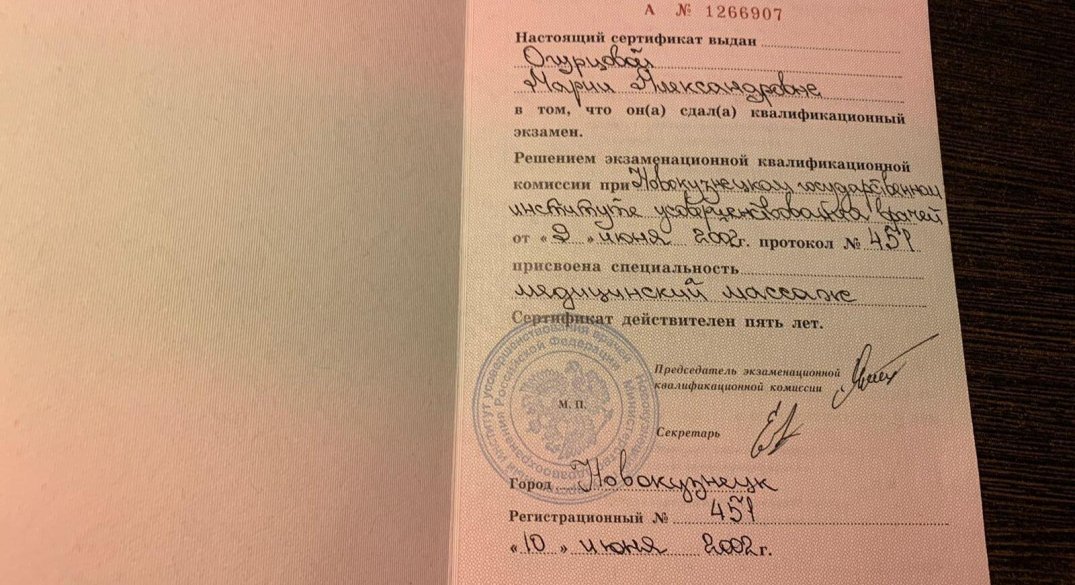 А № 1266907
Настоящий сертификат выдан
Огурцовой
Марии Александровне
в том, что он(а) сдал(а) квалификационный
экзамен.
Решением экзаменационной квалификационной
комиссии при Новокузнецком государственном
институте усовершенствования врачей
от « 9 » июня 2002г. протокол № 451
присвоена специальность
медицинский массаж
Сертификат действителен пять лет.
Председатель экзаменационной
квалификационной комиссии
М. П.
Секретарь
Город Новокузнецк
Регистрационный № 451
« 10 » июня 2002г.